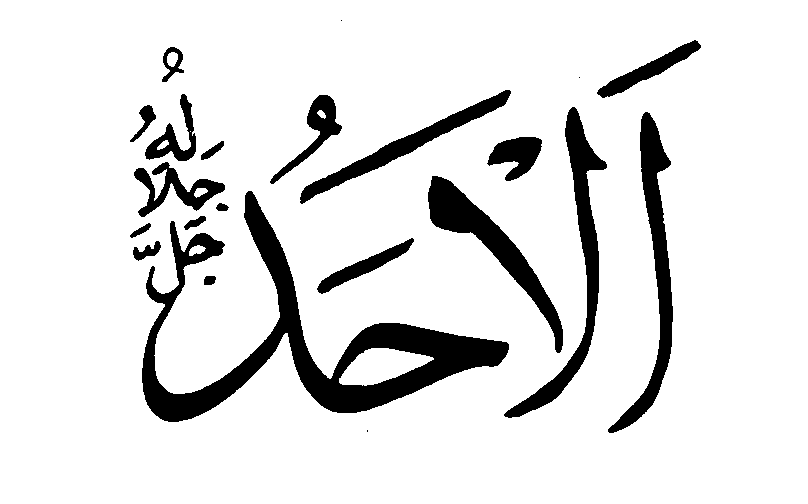 اَلْاَحَدُ
جَلَّ جَلَالُهُ